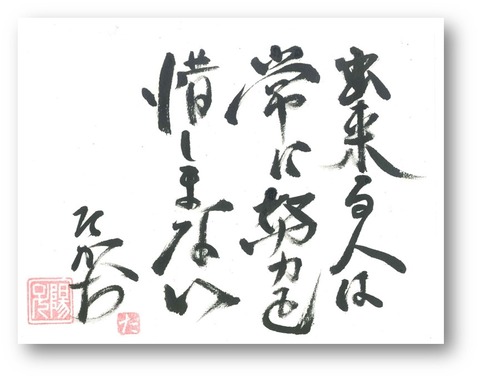 出来る人は
常に努力を
惜しまない
たかお